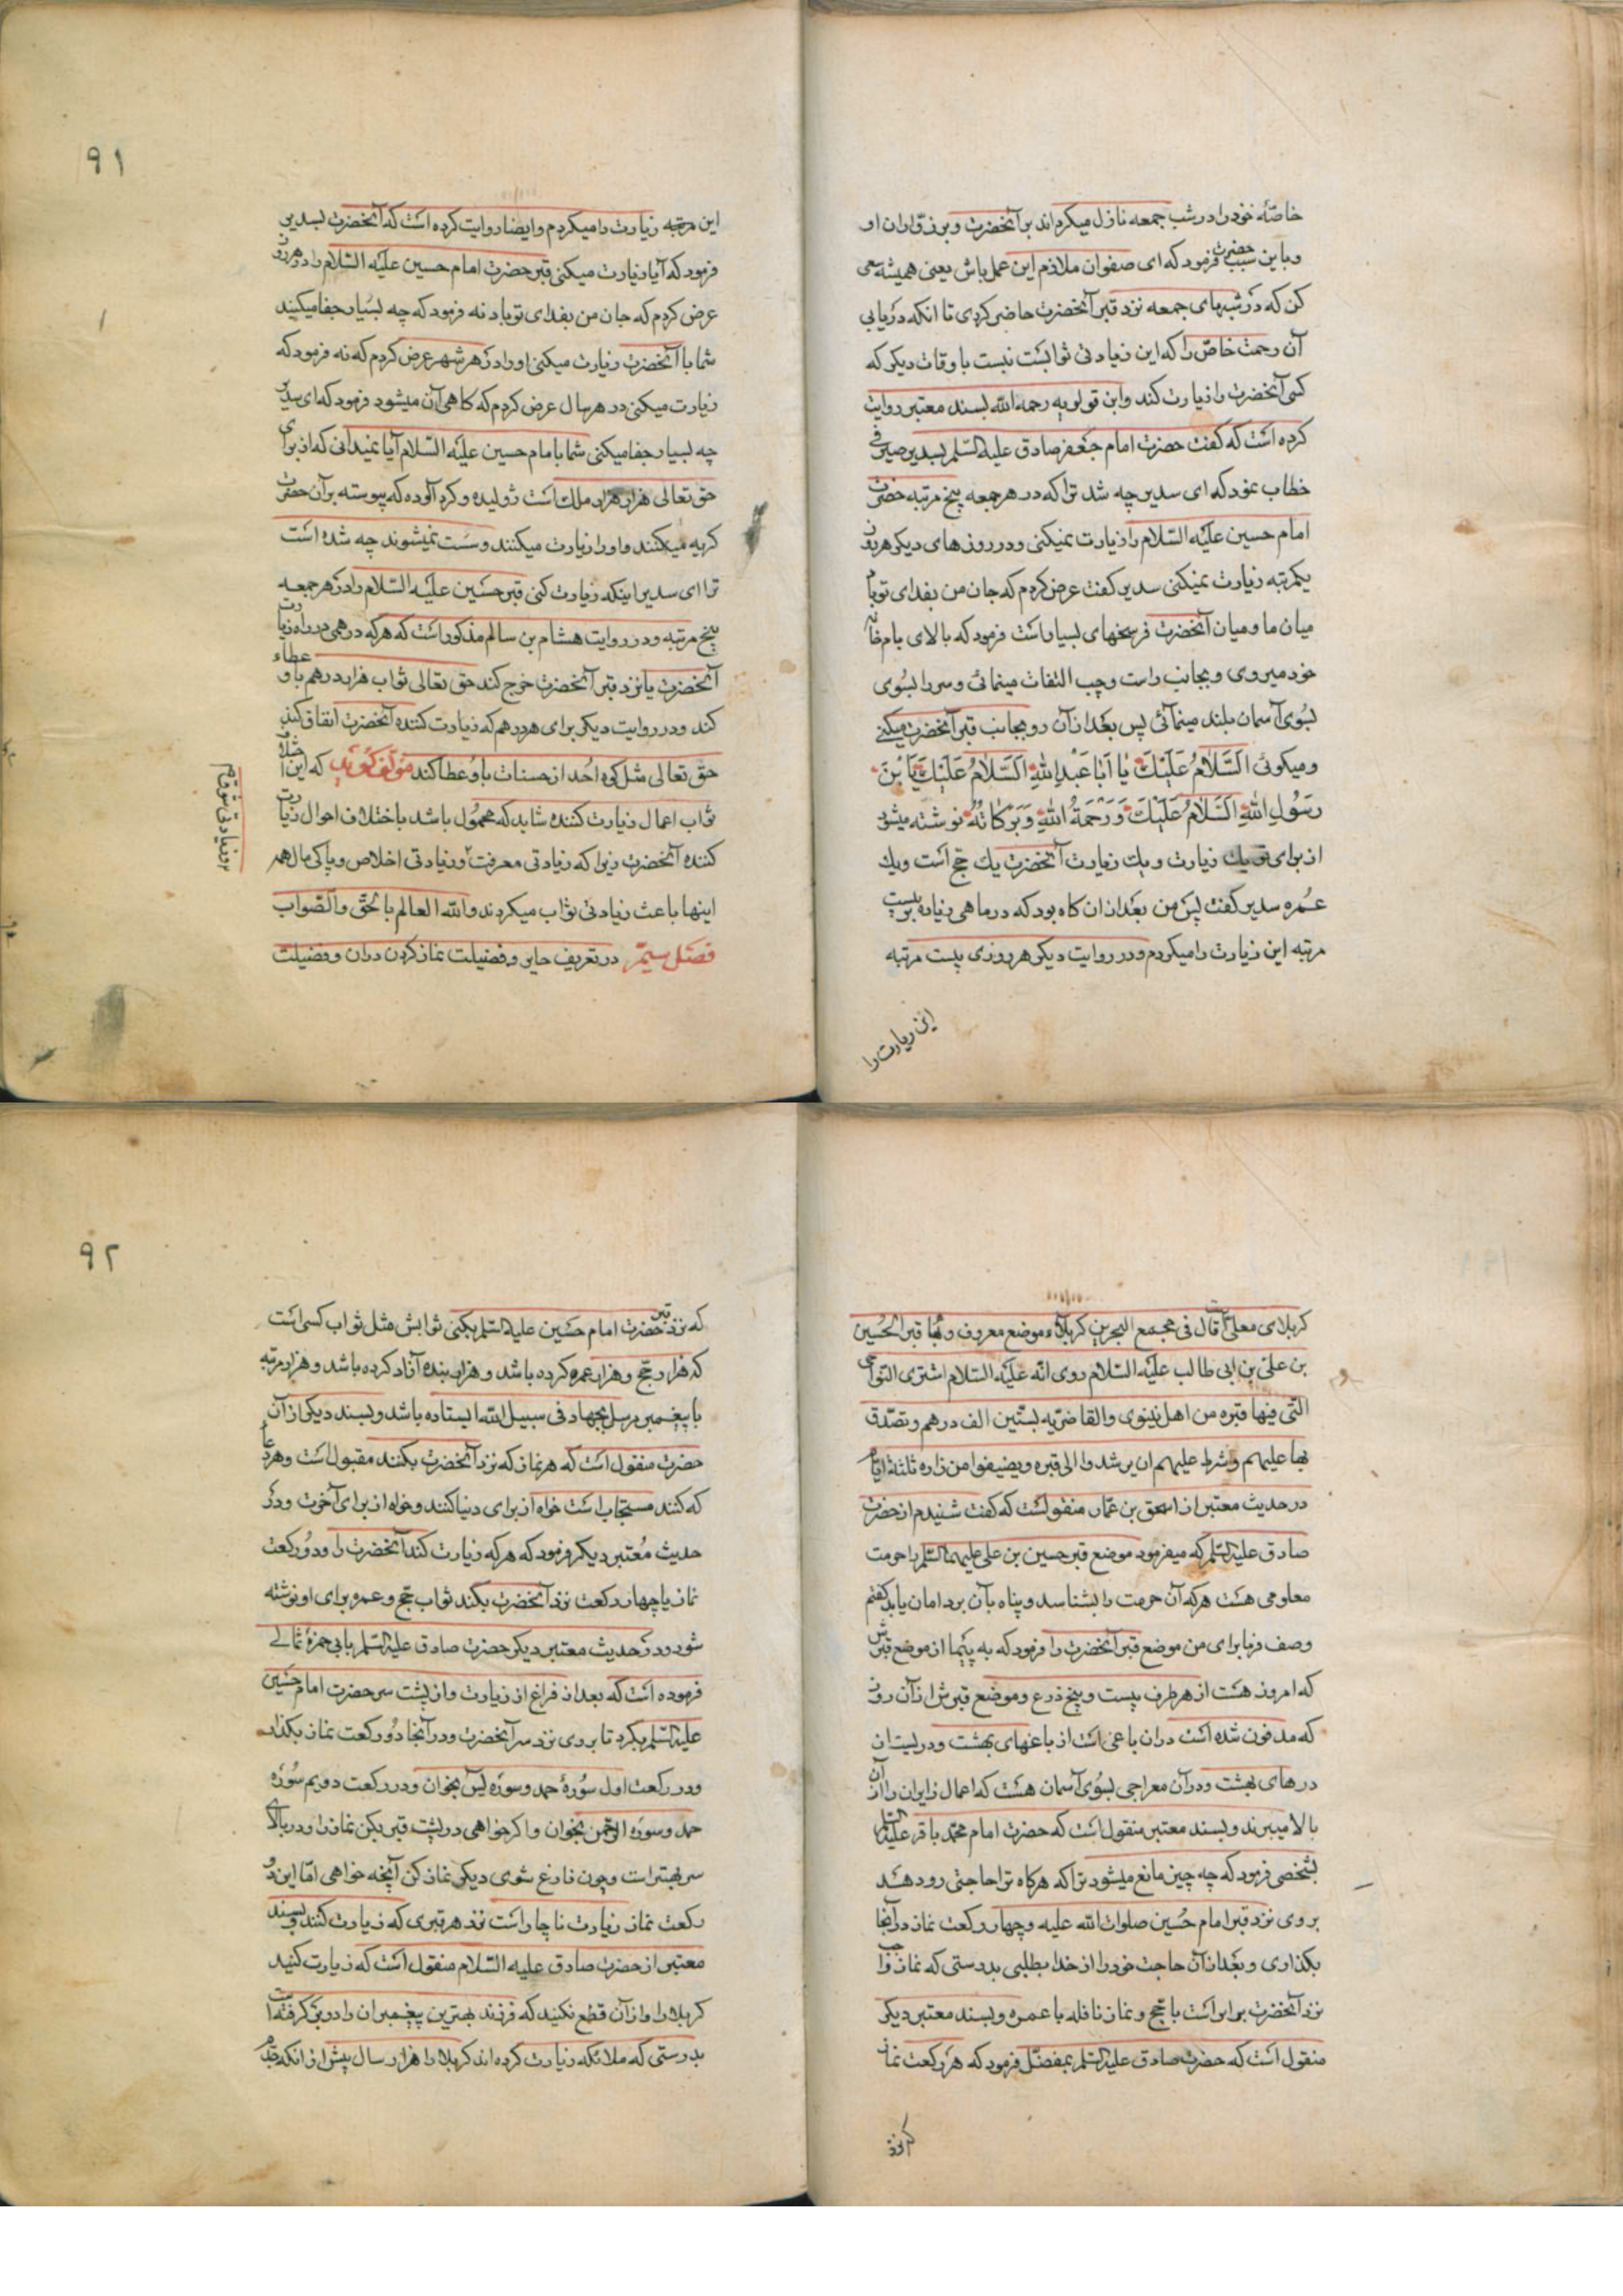 خاصّهٔ خود را در شب جمعه نازل میکرداند بر آنحضرت و بر زوّاران او
و باین سبب حضرت فرمود که ای صفوان ملازم این عمل باش یعنی همیشه سعی
کن که در شبهای جمعه نزد قبر آنحضرت حاضر کردی تا انکه دریابی
آن رحمت خاصّ را که این زیادتی ثوابست نسبت باوقات دیکر که
کسی آنحضرت را زیارت کند و ابن قولویه رحمه الله بسند معتبر روایت
کرده است که کفت حضرت امام جعفر صادق علیه السّلم بسدیر صیرفی
خطاب نمود که ای سدیر چه شد ترا که در هر جمعه پنج مرتبه حضرت
امام حسین علیه السّلام را زیارت نمیکنی و در روزهای دیکر هر روز
یکمرتبه زیارت نمیکنی سدیر کفت عرض کردم که جان من بفدای تو باد
میان ما و میان آنحضرت فرسخهای بسیار است فرمود که بالای بام خانه
خود میروی و بجانب راست و چپ التفات مینمائی و سر را بسوی
بسوی آسمان بلند مینمائی پس بعد از آن رو بجانب قبر آنحضرت میکنی
و میکوئی اَلسَّلامُ عَلَیْكَ یا اَبا عَبْدِاللهِ اَلسَّلامُ عَلَیْكَ یَا بْنَ
رَسُولِ اللهِ اَلسَّلامُ عَلَیْكَ وَرَحْمَةُ اللهِ وَبَرَکاتُهُ نوشته میشود
از برای تو یك زیارت و یك زیارت آنحضرت یك حج است و یك
عمره سدیر کفت پس من بعد از ان کاه بود که در ماهی زیاده بر بیست
مرتبه این زیارت را میکردم و در روایت دیکر هر روزی بیست مرتبه
این زیارت را
۹۱
این مرتبه زیارت را میکردم و ایضا روایت کرده است که آنحضرت بسدیر
فرمود که آیا زیارت میکنی قبر حضرت امام حسین علیه السّلام را در هر روز
عرض کردم که جان من بفدای تو باد نه فرمود که چه بسیار جفا میکنید
شما با آنحضرت زیارت میکنی او را در هر شهر عرض کردم که نه فرمود که
زیارت میکنی در هر سال عرض کردم که کاهی آن میشود فرمود که ای سدیر
چه بسیار جفا میکنی شما بامام حسین علیه السّلام آیا نمیدانی که از برای
حق تعالی هزار هزار ملك است ژولیده و کرد آلوده که پیوسته بر آن حضرت
کریه میکنند و او را زیارت میکنند و سست نمیشوند چه شده است
ترا ای سدیر اینکه زیارت کنی قبر حسین علیه السّلام را در هر جمعه
پنج مرتبه و در روایت هشام بن سالم مذکور است که هر که درهمی در راه زیارت
آنحضرت یا نزد قبر آنحضرت خرج کند حق تعالی ثواب هزار درهم باو عطاء
کند و در روایت دیکر برای هر درهم که زیارت کننده آنحضرت انفاق کند
حق تعالی مثل کوه احُد از حسنات باو عطا کند مؤلّف کوید که این اختلاف
ثواب اعمال زیارت کننده شاید که محمول باشد باختلاف احوال زیارت
کننده آنحضرت زیرا که زیادتی معرفت و زیادتی اخلاص و پاکی مال همر
اینها باعث زیادتی ثواب میکردند والله العالم بالحقّ والصّواب
فصل سیّم در تعریف حایر و فضیلت نماز کردن در ان و فضیلت
کربلای معلّی قال فی مجمع البحرین کربلاء موضع معروف و بها قبر الحسین
بن علیّ بن ابی طالب علیه السّلام روی انّه علیه السّلام اشتری النّواحی
التی فیها قبره من اهل نینوی والغاضریه بستّین الف درهم و تصدّق
بها علیهم و شرط علیهم ان یرشدوا الی قبره و یضیفوا من زاره ثلثة ایّام
در حدیث معتبر از اسحق بن عمّار منقولست که کفت شنیدم از حضرت
صادق علیه السّلم که میفرمود موضع قبر حسین بن علی علیهما السّلم را حرمت
معلومی هست هر که آن حرمت را بشناسد و پناه بآن برد امان یابد کفتم
وصف فرما برای من موضع قبر آنحضرت را فرمود که به پیما از موضع قبرش
که امروز هست از هر طرف بیست و پنج ذرع و موضع قبرش از آن روز
که مدفون شده است در ان باغی است از باغهای بهشت و دریست از
درهای بهشت و در آن معراجی بسوی آسمان هست که اعمال زایران را از آن
بالا میبرند و بسند معتبر منقول است که حضرت امام محمّد باقر علیه السّلم
بشخصی فرمود که چه چیز مانع میشود ترا که هر کاه ترا حاجتی رو دهد
بروی نزد قبر امام حسین صلوات الله علیه و چهار رکعت نماز در آنجا
بکذاری و بعد از آن حاجت خود را از خدا بطلبی بدرستی که نماز واجب
نزد آنحضرت برابر است با حج و نماز نافله با عمره و بسند معتبر دیکر
منقول است که حضرت صادق علیه السّلم بمفضّل فرمود که هر رکعت نماز
که نزد
۹۲
که نزد قبر حضرت امام حسین علیه السّلم بکنی ثوابش مثل ثواب کسی است
که هزار حج و هزار عمره کرده باشد و هزار بنده آزاد کرده باشد و هزار مرتبه
با پیغمبر مرسل بجهاد فی سبیل الله ایستاده باشد و بسند دیکر از آن
حضرت منقول است که هر نماز که نزد آنحضرت بکنند مقبول است و هر دعا
که کنند مستجاب است خواه از برای دنیا کنند و خواه از برای آخرت و در
حدیث معتبر دیکر فرمود که هر که زیارت کند آنحضرت را و دو رکعت
نماز یا چهار رکعت نزد آنحضرت بکند ثواب حج و عمره برای او نوشته
شود و در حدیث معتبر دیکر حضرت صادق علیه السّلم بابی حمزهٔ ثمالی
فرموده است که بعد از فراغ از زیارت و از پشت سر حضرت امام حسین
علیه السّلم بکرد تا بروی نزد سر آنحضرت و در آنجا دو رکعت نماز بکذار
و در رکعت اول سورهٔ حمد و سوره یس بخوان و در رکعت دویم سوره
حمد و سوره الرّحمن بخوان و اکر خواهی در پشت قبر بکن نماز را و در بالای
سر بهتر است و چون فارغ شوی دیکر نماز کن آنچه خواهی امّا این دو
رکعت نماز زیارت ناچار است نزد هر قبری که زیارت کنند و بسند
معتبر از حضرت صادق علیه السّلام منقول است که زیارت کنید
کربلا را و از آن قطع نکنید که فرزند بهترین پیغمبران را در بر کرفته است
بدرستی که ملائکه زیارت کرده اند کربلا را هزار سال پیش از انکه جدّم